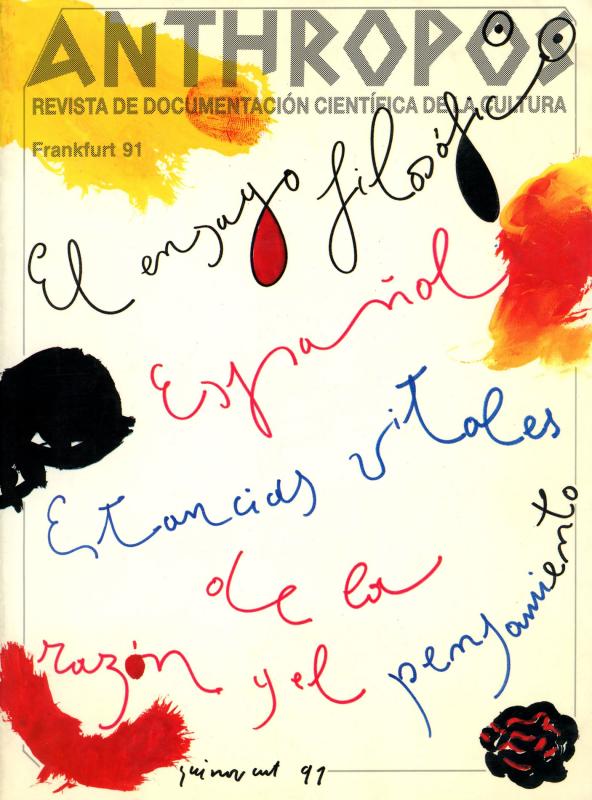 ANTHROPOS
REVISTA DE DOCUMENTACIÓN CIENTÍFICA DE LA CULTURA
Frankfurt 91
El ensayo filosófico
Español
Estancias vitales
de la
razón y el pensamiento
guinovart 91